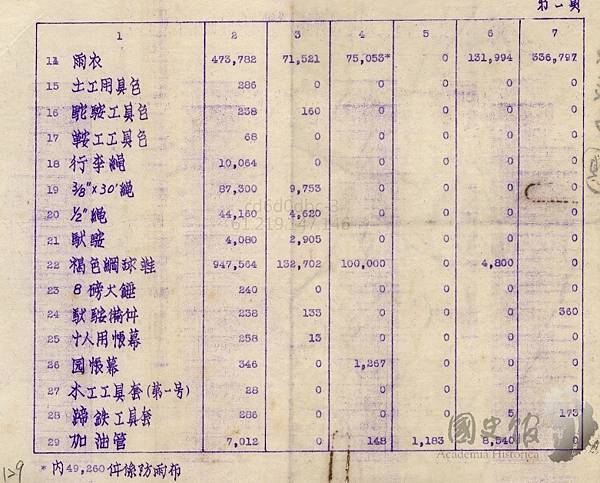 第一類
1 2 3 4 5 6 7
14 雨衣 473,782 71,521 75,053* 0 131,994 336,797
15 土工用具包 286 0 0 0 0 0
16 駝鞍工具包 238 160 0 0 0 0
17 鞍工工具包 68 0 0 0 0 0
18 行李繩 10,064 0 0 0 0 0
19 3/8"×30'繩 87,300 9,753 0 0 0 0
20 1/2"繩 44,160 4,620 0 0 0 0
21 馱鞍 4,080 2,905 0 0 0 0
22 褐色網球鞋 947,564 132,702 100,000 0 4,800 0
23 8磅大錘 240 0 0 0 0 0
24 馱鞍備件 238 133 0 0 0 360
25 十人用帳幕 258 13 0 0 0 0
26 园帳幕 346 0 1,267 0 0 0
27 木工工具套(第一号) 28 0 0 0 0 0
28 蹄鉄工具套 286 0 0 0 5 173
29 加油管 7,012 0 148 1,183 8,540 0
*內49,260件係防雨布
129
國史館
Academia Historica
61.219.147.146